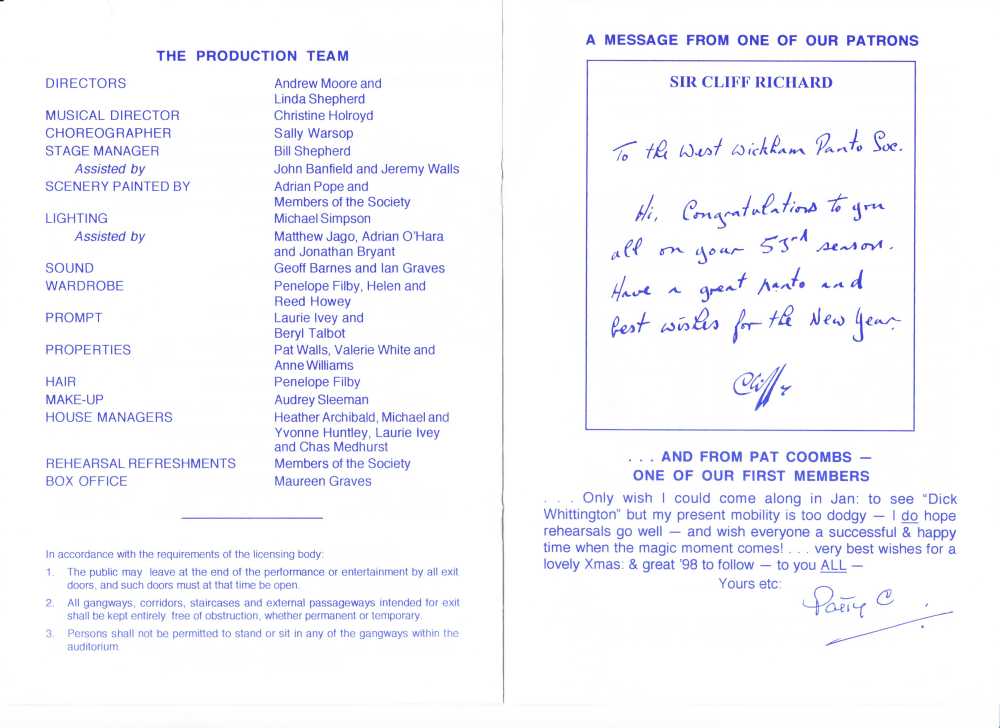 THE PRODUCTION TEAM
DIRECTORS Andrew Moore and
Linda Shepherd
MUSICAL DIRECTOR Christine Holroyd
CHOREOGRAPHER Sally Warsop
STAGE MANAGER Bill Shepherd
Assisted by John Banfield and Jeremy Walls
SCENERY PAINTED BY Adrian Pope and
Members of the Society
LIGHTING Michael Simpson
Assisted by Matthew Jago, Adrian O'Hara
and Jonathan Bryant
SOUND Geoff Barnes and Ian Graves
WARDROBE Penelope Filby, Helen and
Reed Howey
PROMPT Laurie Ivey and
Beryl Talbot
PROPERTIES Pat Walls, Valerie White and
Anne Williams
HAIR Penelope Filby
MAKE-UP Audrey Sleeman
HOUSE MANAGERS Heather Archibald, Michael and
Yvonne Huntley, Laurie Ivey
and Chas Medhurst
REHEARSAL REFRESHMENTS Members of the Society
BOX OFFICE Maureen Graves
In accordance with the requirements of the licensing body:
1. The public may leave at the end of the performance or entertainment by all exit
doors, and such doors must at that time be open.
2. All gangways, corridors, staircases and external passageways intended for exit
shall be kept entirely free of obstruction, whether permanent or temporary.
3. Persons shall not be permitted to stand or sit in any of the gangways within the
auditorium.
A MESSAGE FROM ONE OF OUR PATRONS
SIR CLIFF RICHARD
To the West Wickham Panto Soc.
Hi, Congratulations to you
all on your 53rd season.
Have a great panto and
best wishes for the New Year.
Cliff
. . . AND FROM PAT COOMBS —
ONE OF OUR FIRST MEMBERS
. . . Only wish I could come along in Jan: to see "Dick
Whittington" but my present mobility is too dodgy — I do hope
rehearsals go well — and wish everyone a successful & happy
time when the magic moment comes! . . . very best wishes for a
lovely Xmas: & great '98 to follow — to you ALL —
Yours etc:
Patty C